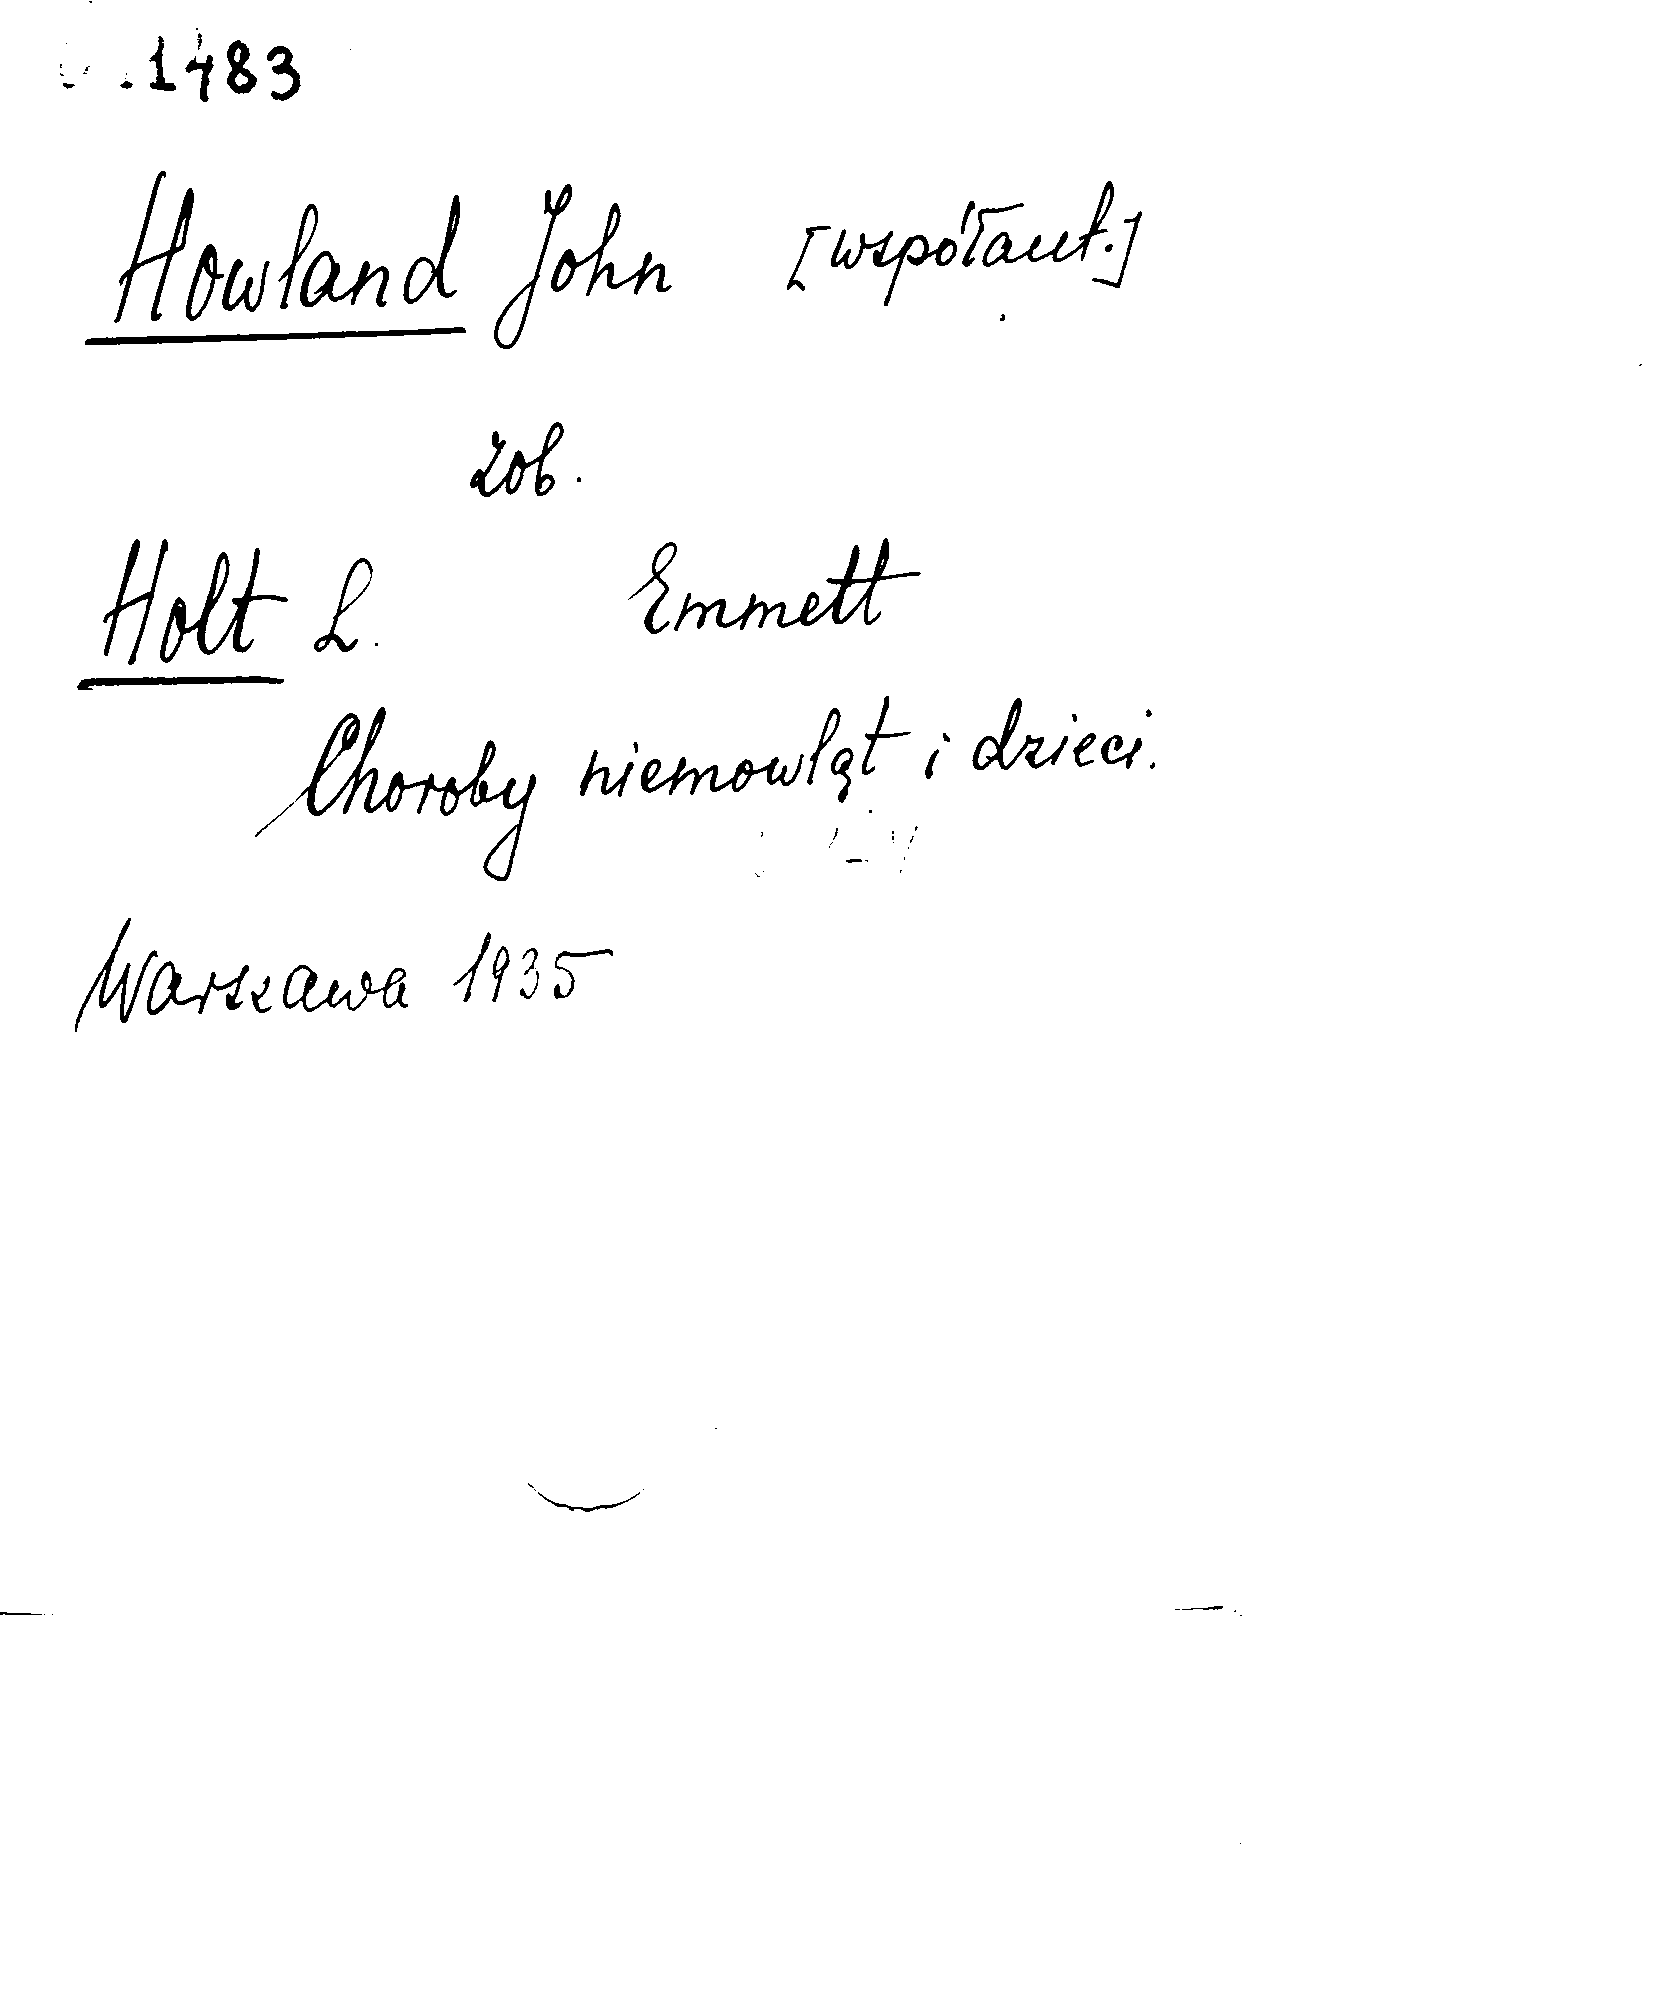 .1483
Howland John [współaut.]
zob.
Holt L. Emmett
Choroby niemowląt i dzieci.
Warszawa 1935